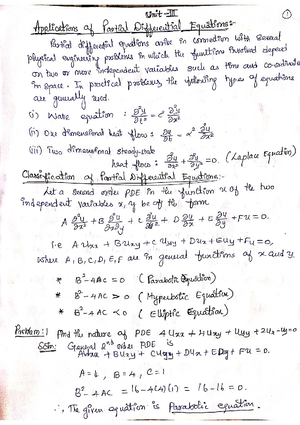 Unit-III
①
Applications of Partial Differential Equations:-
Partial differential equations arise in connection with several
physical engineering problems in which the functions involved depend
on two or more independent variables such as time and co-ordinate
in space. In practical problems, the following types of equations
are generally used.
(i) Wave equation : ∂²y/∂t² = c² ∂²y/∂x²
(ii) One dimensional heat flow : ∂u/∂t = c² ∂²u/∂x²
(iii) Two dimensional steady-state
heat flow : ∂²u/∂x² + ∂²u/∂y² = 0. (Laplace Equation)
Classification of Partial Differential Equations:-
Let a second order PDE in the function u of the two
independent variables x, y be of the form
A ∂²u/∂x² + B ∂²u/∂x∂y + C ∂²u/∂y² + D ∂u/∂x + E ∂u/∂y + Fu = 0.
i.e A Uxx + B Uxy + C Uyy + DUx + EUy + Fu = 0,
where A, B, C, D, E, F are in general functions of x and y
* B²-4AC = 0 (Parabolic Equation)
* B²-4AC > 0 (Hyperbolic Equation)
* B²-4AC < 0 (Elliptic Equation)
Problem:1 Find the nature of PDE 4Uxx + 4Uxy + Uyy + 2Ux - Uy = 0
Soln: General 2nd order PDE is
AUxx + BUxy + CUyy + DUx + EUy + Fu = 0.
A = 4, B = 4, C = 1
B²-4AC = 16-4(4)(1) = 16-16 = 0.
∴ The given equation is Parabolic equation.